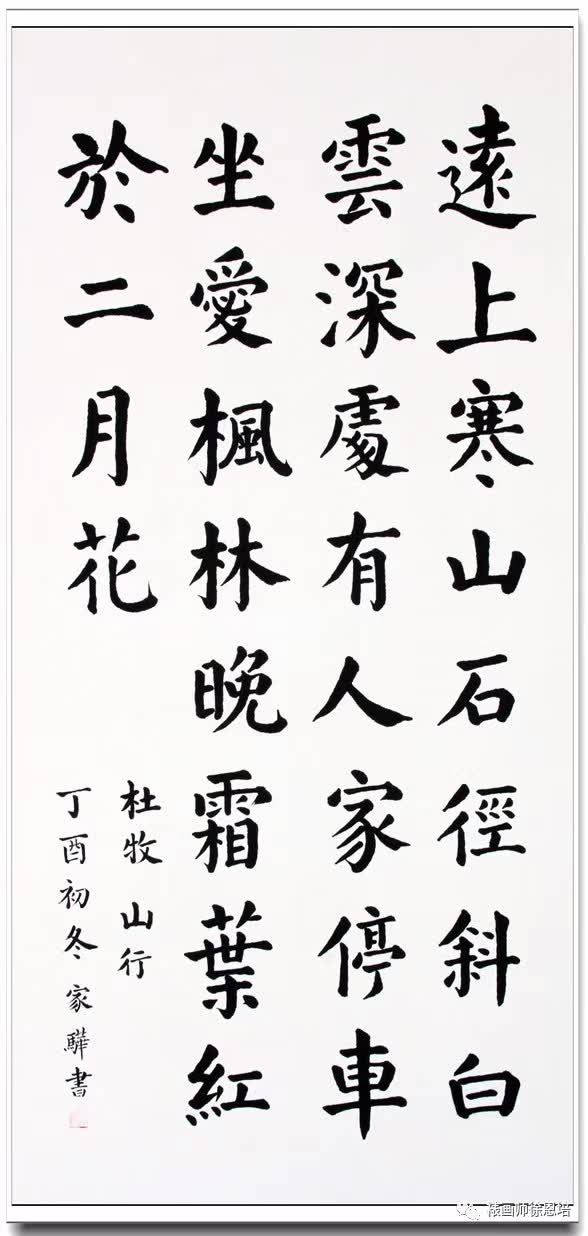 遠上寒山石徑斜白
雲深處有人家停車
坐愛楓林晚霜葉紅
於二月花
杜牧 山行
丁酉初冬 家驊書
裱画师徐恩培